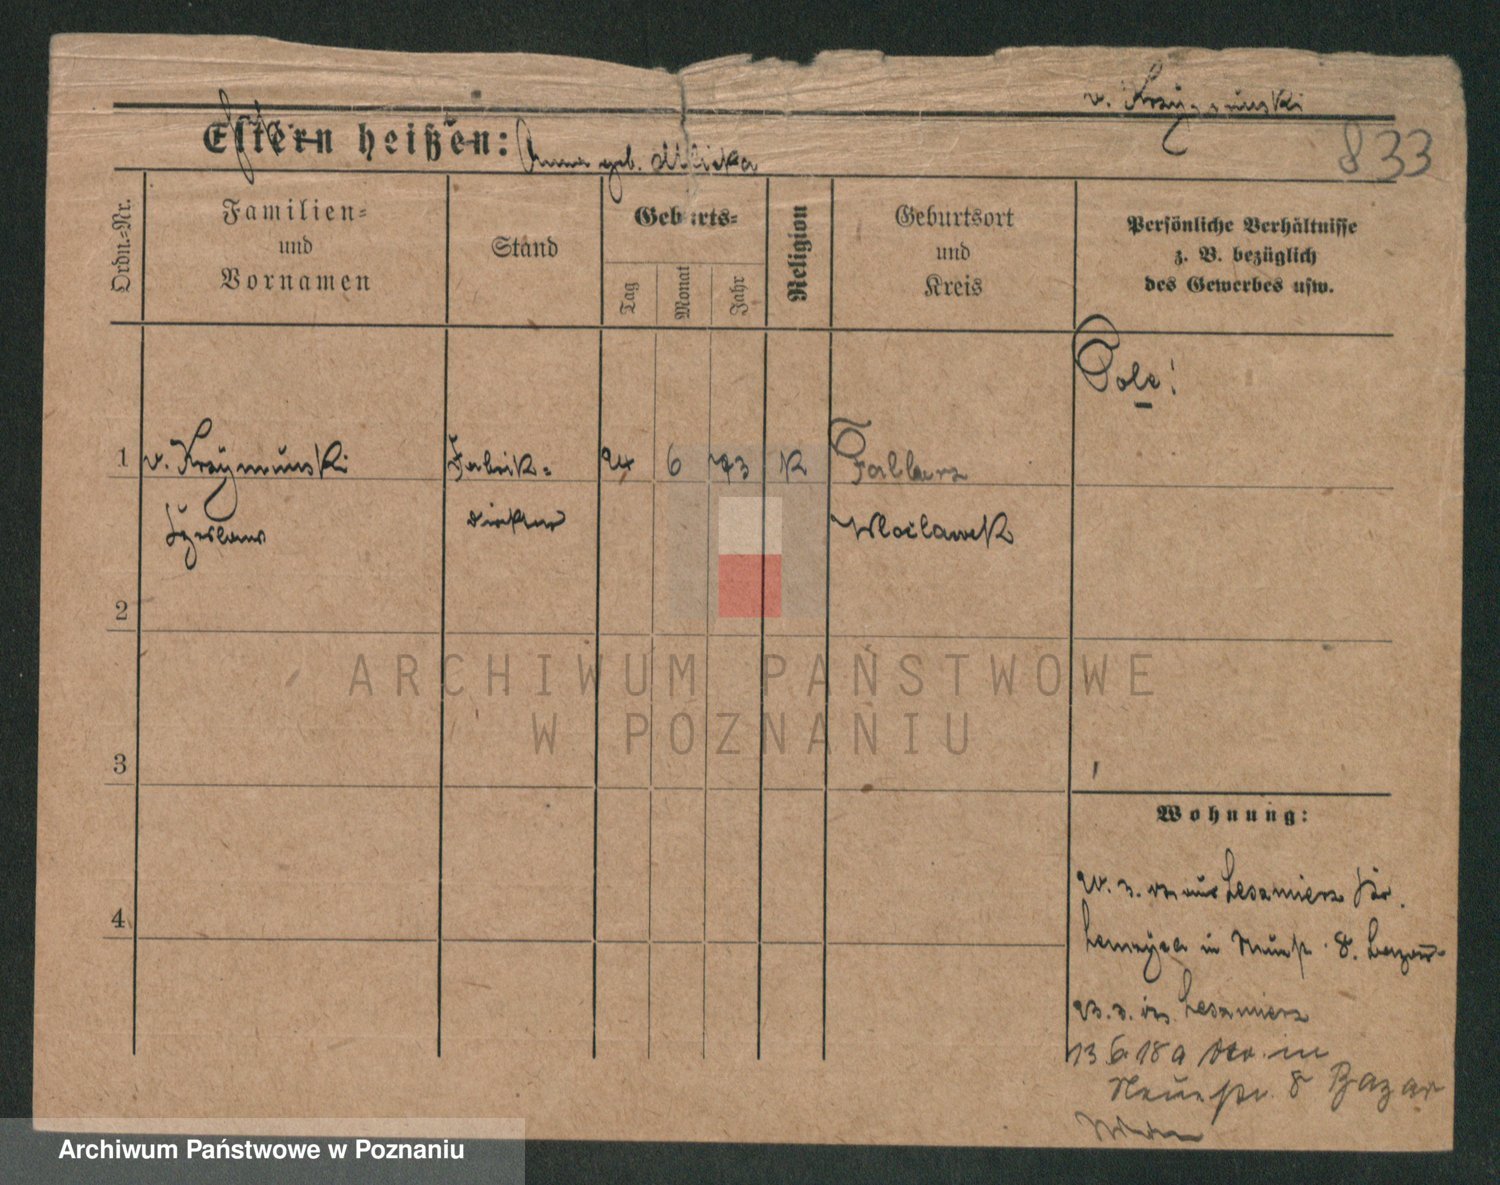 v. Krzymuski
833
Eltern heißen: Anna geb.
Ordn.-Nr.
Familien-
und
Vornamen
Stand
Geburts-
Tag
Monat
Jahr
Religion
Geburtsort
und
Kreis
Persönliche Verhältnisse
z. B. bezüglich
des Gewerbes usw.
Pole!
1 v. Krzymuski Fabrik- 24 6 73 K
direktor Wloclawek
2
3
4
Wohnung:
aus Lesmierz Kr.
in Neuestr. 8. Bazar
Lesmierz
13 6 18 a in
Neuestr. 8 Bazar
ARCHIWUM PAŃSTWOWE
W POZNANIU
Archiwum Państwowe w Poznaniu